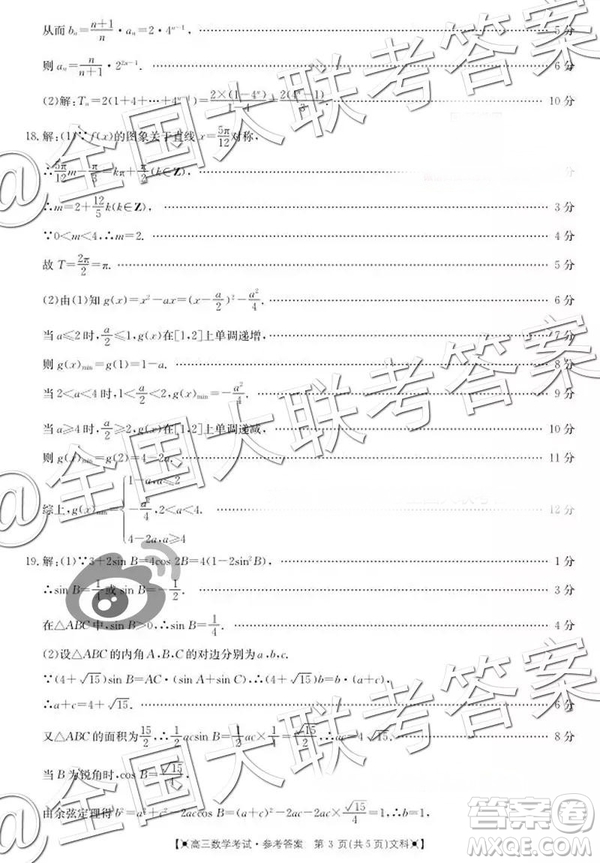 从而 bₙ = (n+1)/n · aₙ = 2 · 4ⁿ⁻¹. 5分
则 aₙ = n/(n+1) · 2²ⁿ⁻¹. 6分
(2)解：Tₙ = 2(1+4+…+4ⁿ⁻¹) = 2×(1-4ⁿ)/(1-4) = 2(4ⁿ-1)/3. 10分
18.解：(1)∵f(x)的图象关于直线 x = 5π/12 对称，
∴5π/12 m = kπ + π/2 (k∈Z)， 分
∴m = 2 + 12/5 k(k∈Z)， 3分
∵0<m<4，∴m=2. 4分
故 T = 2π/2 = π. 5分
(2)由(1)知 g(x) = x² - ax = (x - a/2)² - a²/4. 6分
当 a≤2 时，a/2≤1，g(x)在[1,2]上单调递增，
则 g(x)min = g(1) = 1-a. 8分
当 2<a<4 时，1<a/2<2，g(x)min = -a²/4. 9分
当 a≥4 时，a/2≥2，g(x)在[1,2]上单调递减，
则 g(x)min = g(2) = 4-2a. 11分
综上，g(x)min = { 1-a, a≤2
-a²/4, 2<a<4. 12分
4-2a, a≥4
19.解：(1)∵3+2sin B=4cos 2B=4(1-2sin²B)， 1分
∴sin B = 1/4 或 sin B = -1/2. 3分
在△ABC中，sin B>0，∴sin B = 1/4. 4分
(2)设△ABC的内角A，B，C的对边分别为a，b，c.
∵(4+√15)sin B=AC·(sin A+sin C)，∴(4+√15)b=b·(a+c)，
∴a+c=4+√15. 6分
又△ABC的面积为 15/2，∴1/2 acsin B = 1/2 ac × 1/4 = 15/2，∴ac= 8分
当B为锐角时，cos B = √15/4，
由余弦定理得 b²=a²+c²-2accos B=(a+c)²-2ac-2ac×√15/4=1，∴b=1.
【高三数学考试·参考答案 第3页(共5页)文科】
@全国大联考答案
@全国大联考答案
@全国大联考答案
答案圈
MXQE.COM